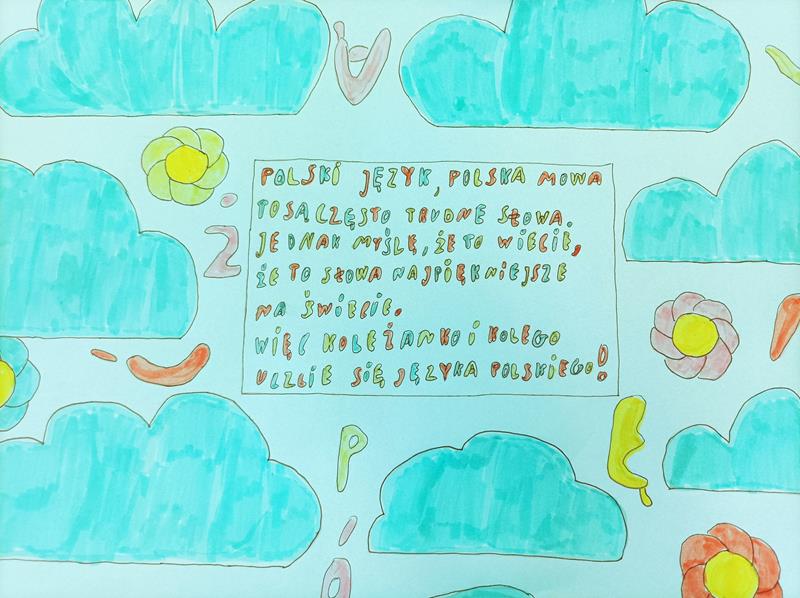 POLSKI JĘZYK, POLSKA MOWA
TO SĄ CZĘSTO TRUDNE SŁOWA.
JEDNAK MYŚLĘ, ŻE TO WIECIE,
ŻE TO SŁOWA NAJPIĘKNIEJSZE
NA ŚWIECIE.
WIĘC KOLEŻANKO i KOLEGO
UCZCIE SIĘ JĘZYKA POLSKIEGO!
Ż
P
Ó